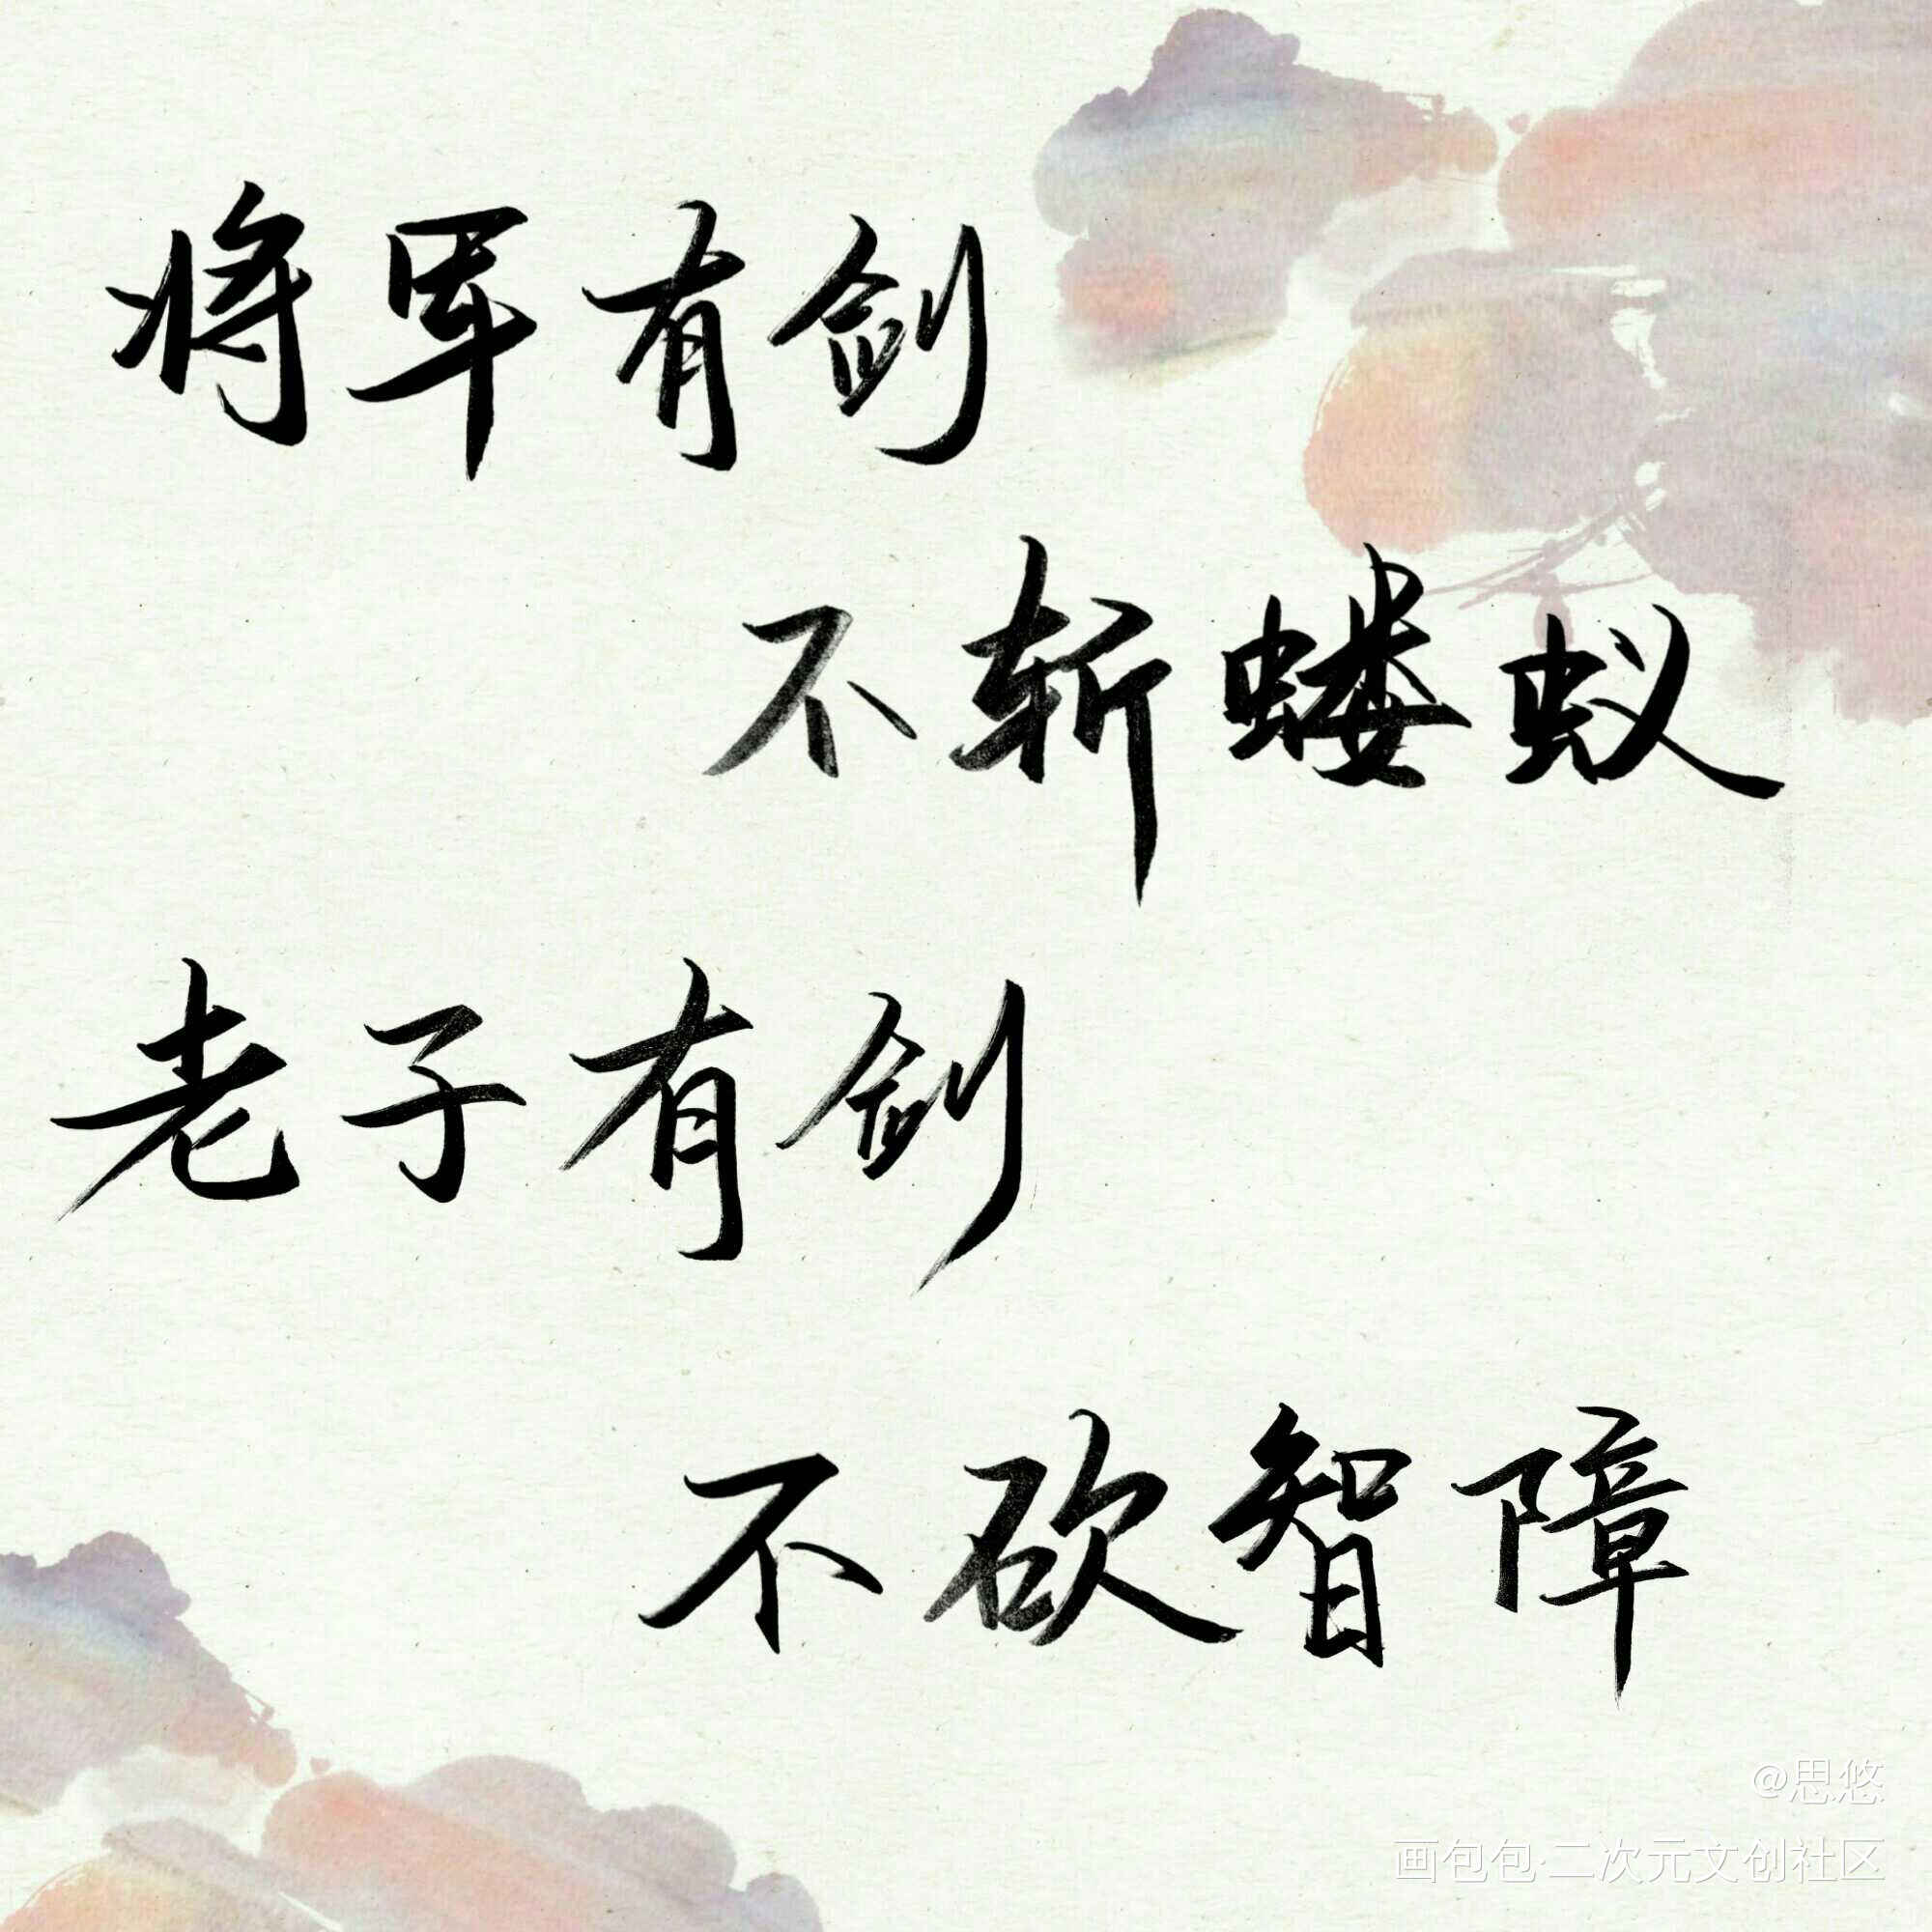 将军有剑
不斩蝼蚁
老子有剑
不砍智障
@思悠
画包包·二次元文创社区